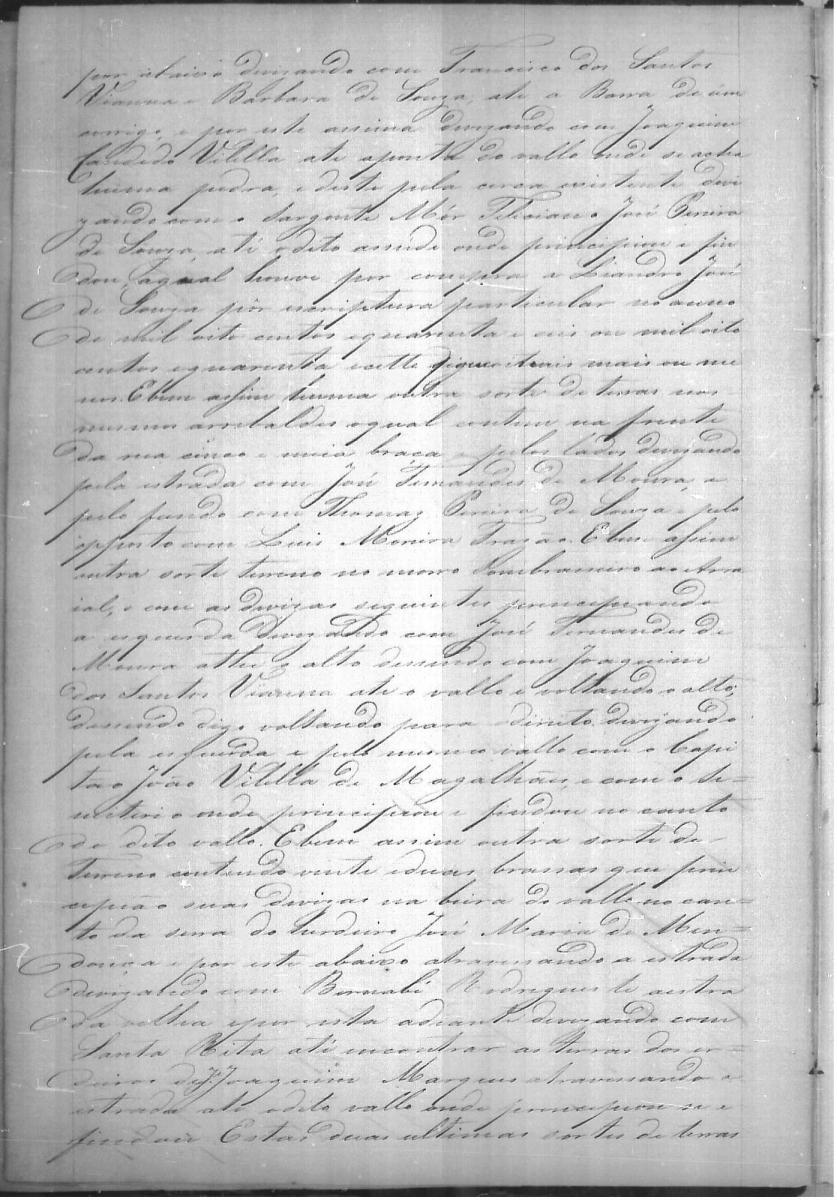 por abaixo divisando com Francisco dos Santos
Vianna e Barbara de Souza, até a Barra de úm
corrigo, e por este assima divizando com Joaquim
Candido Vilella até aponta do vallo onde se acha
huma pedra, e deste pela cerca existente divi
zando com o Sargento Mór Feliciano José Pereira
de Souza, até o dito onde principiou e fin
dou, aqual houve por compra a Liandro José
de Souza pôr escriptura particular no anno
de mil oito centos e quarenta e seis ou mil oito
centos e quarenta e sette mais ou me
nos. E bem assim huma outra sorte de terras nos
mesmos arrebaldes o qual contem na frente
da rua cinco e meia braça e pelos lados divizando
pela estrada com José Fernandes de Moura, e
pelo fundo com Thomaz Pereira de Souza e pelo
opposto com Luis Moreira Trazão. E bem assim
outra sorte terreno no morro ao Arra
ial, e com as divizas seguintes principiando
a esquerda divizando com José Fernandes de
Moura athe o alto dessendo com Joaquim
dos Santos Vianna até o vallo e voltando o alto,
dessendo digo voltando para direito divizando
pela esquerda e pelo mesmo vallo com o Capi
tão João Vilella de Magalhães, e com o Se=
miterio onde principiou e findou no canto
do dito vallo. E bem assim outra sorte de
Terreno contendo vinte e duas brassas que prin
cipião suas divizas na beira do vallo no can=
to da do herdeiro José Maria de Men=
donça e por este abaixo atravessando a estrada
divizando com Bernabé Rodrigues te a estra
da velha e por esta adiante divizando com
Santa Rita até incontrar as terras dos er=
deiros de Joaquim Marques atravessando a
estrada até o dito vallo onde principiou se e
findou Estas duas ultimas sortes de terras